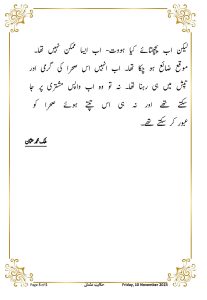 لیکن اب پچھتائے کیا ہووت- اب ایسا ممکن نہیں تھا۔
موقع ضائع ہو چکا تھا۔ اب انہیں اس صحرا کی گرمی اور
تپش میں ہی رہنا تھا۔ نہ تو وہ اب واپس مشتری پر جا
سکتے تھے اور نہ ہی اس تپتے ہوئے صحرا کو
عبور کر سکتے تھے۔
Friday, 10 November 2023